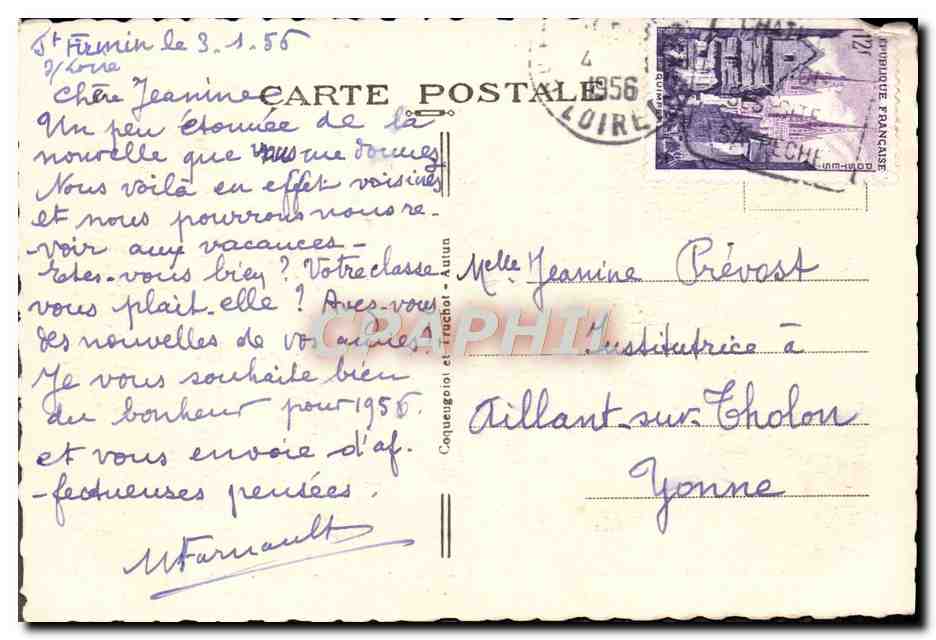 St Firmin le 3.1.56
s/Loire
Chère Jeanine
CARTE POSTALE
Un peu étonnée de la
nouvelle que vous me donnez
Nous voilà en effet voisines
et nous pourrons nous re-
voir aux vacances -
Etes-vous bien ? Votre classe
vous plait-elle ? Avez-vous
des nouvelles de vos autres.
Je vous souhaite bien
du bonheur pour 1956.
et vous envoie d'af-
-fectueuses pensées.
MFarnault
Coqueugniot et Truchot - Autun
4
1956
LOIRET
CHAT
SITE
PECHE
12f
REPUBLIQUE FRANCAISE
POSTES
QUIMPER
Melle Jeanine Prévost
Institutrice à
Aillant-sur-Tholon
Yonne
CPAPHIL